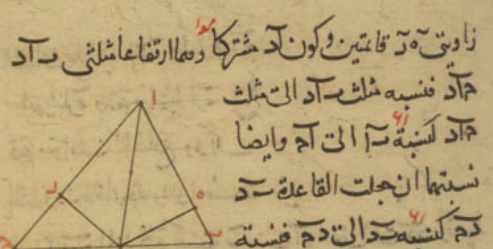 زاويتي ه ر قائمتين وكون آد مشتركا وهما ارتفاعا مثلثي ب آد
ج آد فنسبة مثلث ب آد الى مثلث
ج آد كنسبة ب آ الى آج وايضا
نسبتهما ان جعلت القاعدة ب د
د ج كنسبة ب د الى د ج فنسبة